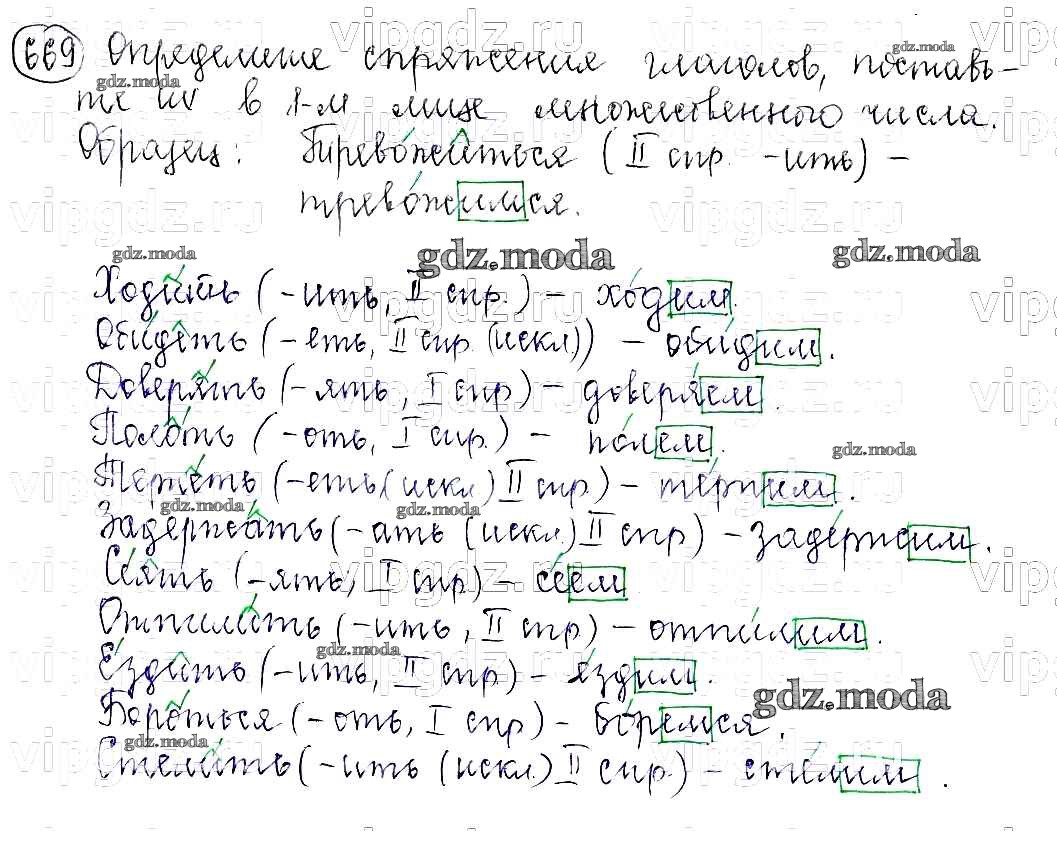 669 Определите спряжения глаголов, поставь-
те их в 1-м лице множественного числа.
Образец: Тревожиться (II спр. -ить) -
тревожимся.
Ходить (-ить, II спр.) - ходим.
Обидеть (-еть, II спр (искл)) - обидим.
Доверять (-ять, I спр) - доверяем.
Полоть (-оть, I спр.) - полем.
Терпеть (-еть (искл) II спр.) - терпим.
Задержать (-ать (искл) II спр) - задержим.
Сеять (-ять, I спр) - сеем
Отпилить (-ить, II спр) - отпилим.
Ездить (-ить, II спр) - ездим.
Бороться (-оть, I спр) - боремся.
Стелить (-ить (искл.) II спр.) - стелим.
vipgdz.ru
gdz.moda